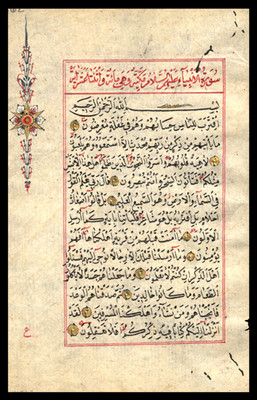 سورة الأنبياء عليهم السلام مكية وهي مائة واثنتا عشرة آية
بسم الله الرحمن الرحيم
اقترب للناس حسابهم وهم في غفلة معرضون
ما يأتيهم من ذكر من ربهم محدث إلا استمعوه وهم يلعبون
لاهية قلوبهم وأسروا النجوى الذين ظلموا هل هذا إلا بشر
مثلكم أفتأتون السحر وأنتم تبصرون قال ربي يعلم القول
في السماء والأرض وهو السميع العليم بل قالوا أضغاث
أحلام بل افتراه بل هو شاعر فليأتنا بآية كما أرسل
الأولون ما آمنت قبلهم من قرية أهلكناها أفهم
يؤمنون وما أرسلنا قبلك إلا رجالا نوحي إليهم فسئلوا
أهل الذكر إن كنتم لا تعلمون وما جعلناهم جسدا لا يأكلون
الطعام وما كانوا خالدين ثم صدقناهم الوعد
فأنجيناهم ومن نشاء وأهلكنا المسرفين لقد
أنزلنا إليكم كتابا فيه ذكركم أفلا تعقلون
ع